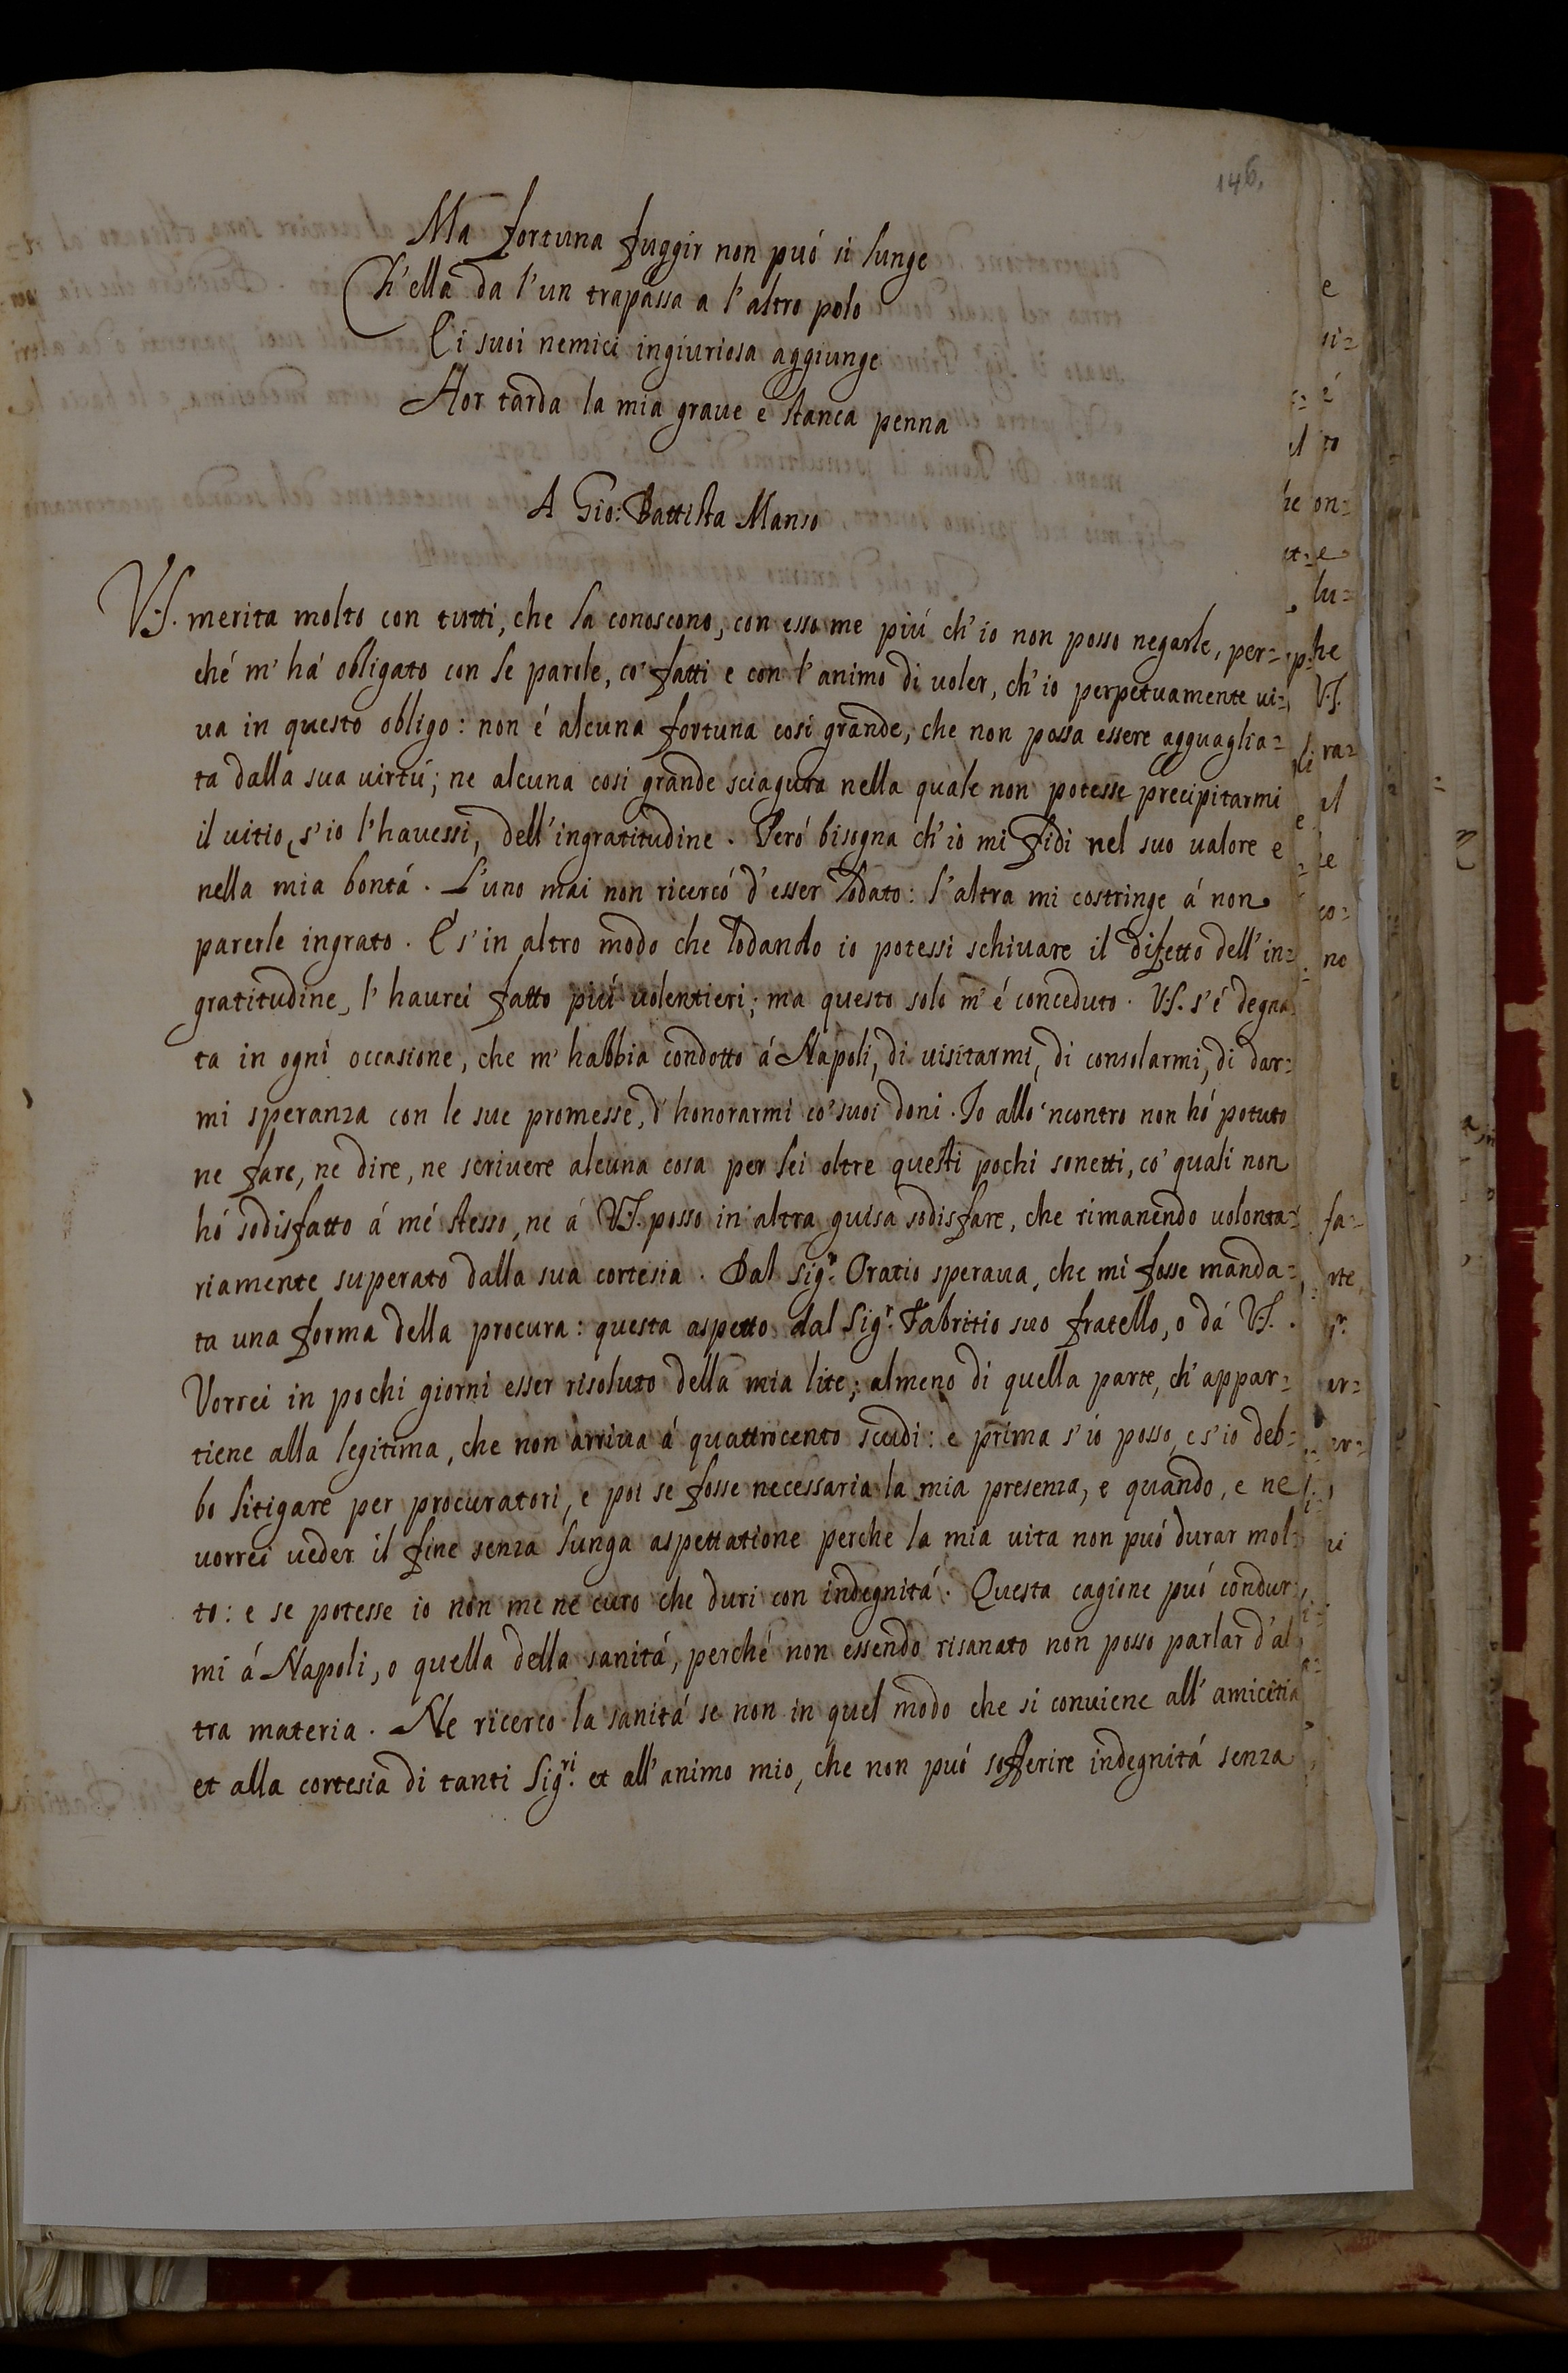 146.
Ma fortuna fuggir non può si lunge
Ch'ella da l'un trapassa a l'altro polo
E i suoi nemici ingiuriosa aggiunge
Hor tarda la mia graue e stanca penna
A Gio: Battista Manso
V.S. merita molto con tutti, che la conoscono, con esso me piú ch'io non posso negarle, per=
ché m'há obligato con le parole, co' fatti e con l'animo di uoler, ch'io perpetuamente ui=
ua in questo obligo: non é alcuna fortuna cosi grande, che non possa essere agguaglia=
ta dalla sua uirtú; ne alcuna cosi grande sciagura nella quale non potesse precipitarmi
il uitio, s'io l'hauessi, dell'ingratitudine. Peró bisogna ch'io mi fidi nel suo ualore e
nella mia bontá. L'uno mai non ricercó d'esser lodato: l'altra mi costringe á non
parerle ingrato. E s'in altro modo che lodando io potessi schiuare il difetto dell'in=
gratitudine, l'haurei fatto piú uolentieri; ma questo solo m'é conceduto. V.S. s'é degna
ta in ogni occasione, che m'habbia condotto á Napoli, di uisitarmi, di consolarmi, di dar=
mi speranza con le sue promesse, d'honorarmi co' suoi doni. Io allo 'ncontro non hó potuto
ne fare, ne dire, ne scriuere alcuna cosa per lei oltre questi pochi sonetti, co' quali non
hó sodisfatto á mé stesso, ne á V.S. posso in altra guisa sodisfare, che rimanendo uolonta=
riamente superato dalla sua cortesia. Dal Sigr. Oratio speraua, che mi fosse manda=
ta una forma della procura: questa aspetto dal Sigr. Fabritio suo fratello, o dá V.S..
Vorrei in pochi giorni esser risoluto della mia lite; almeno di quella parte, ch'appar=
tiene alla legitima, che non arriua á quattrocento scudi: e prima s'io posso, e s'io deb=
bo litigare per procuratori, e poi se fosse necessaria la mia presenza, e quando, e ne
uorrei ueder il fine senza lunga aspettatione perche la mia uita non puó durar mol=
to: e se potesse io non me ne curo che duri con indegnitá. Questa cagione puó condur
mi á Napoli, o quella della sanitá, perché non essendo risanato non posso parlar d'al
tra materia. Ne ricerco la sanitá se non in quel modo che si conuiene all'amicitia
et alla cortesia di tanti Sigri. et all'animo mio, che non puó sofferire indegnitá senza